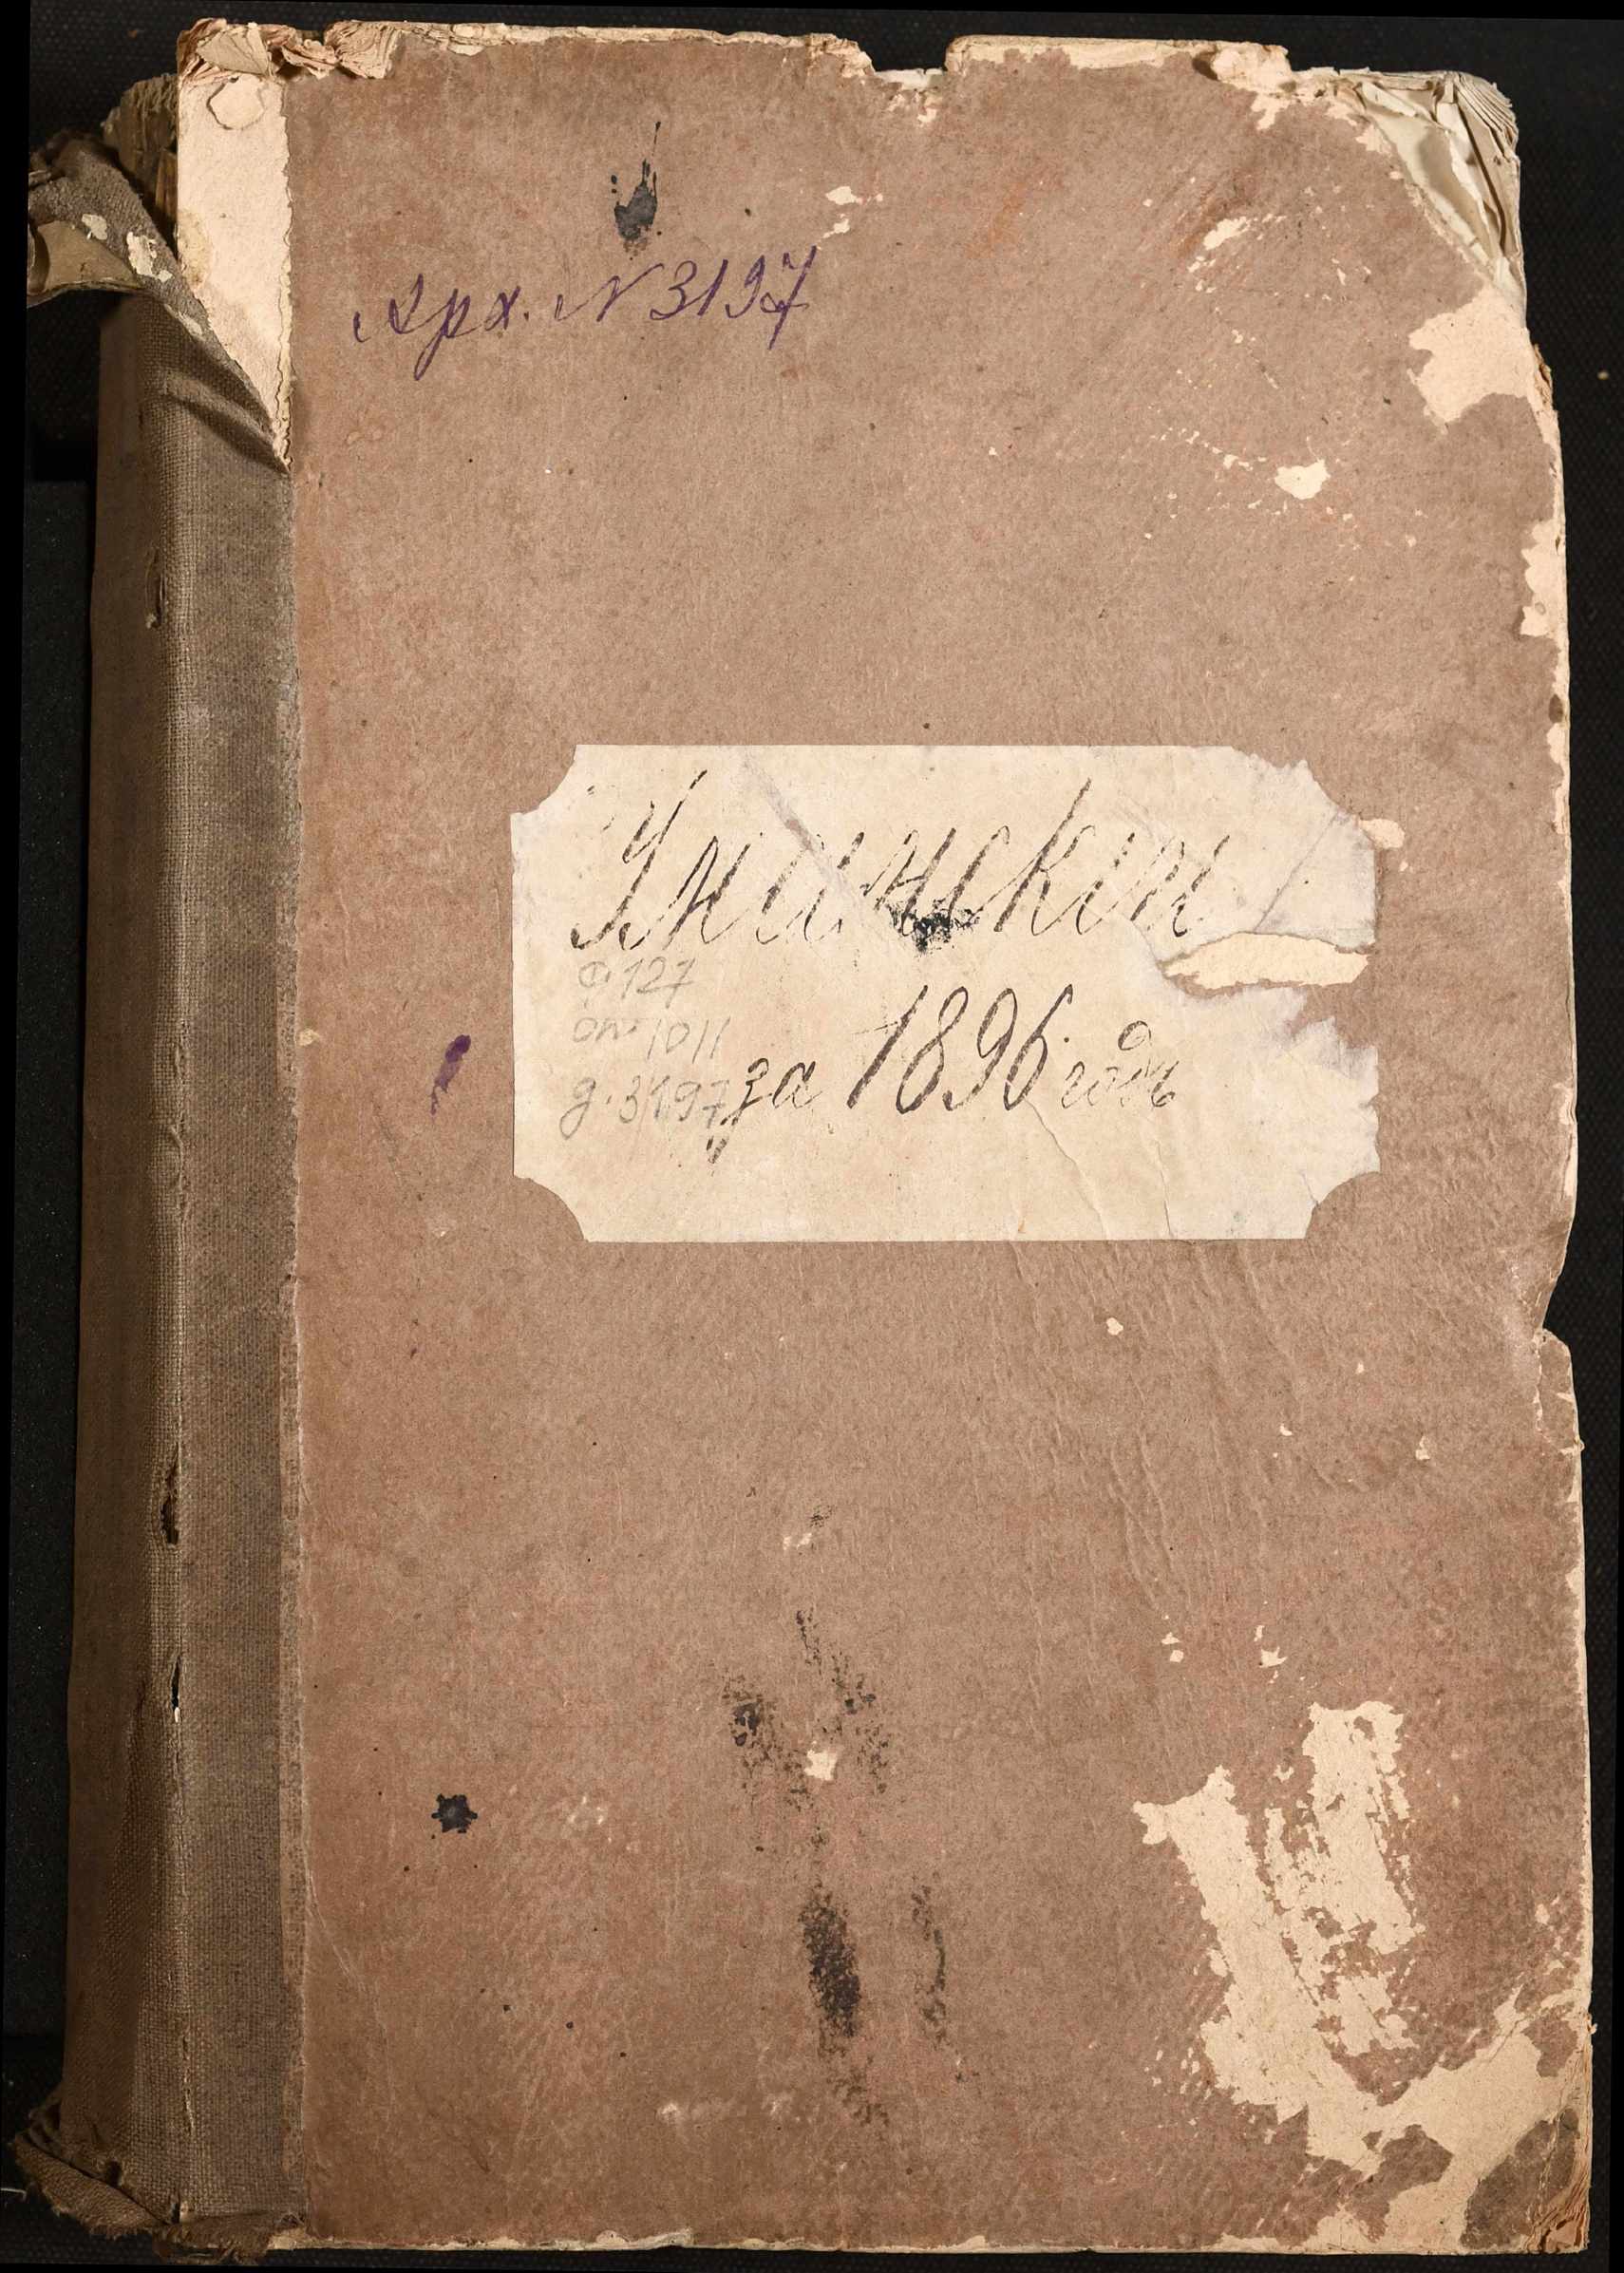 Арх. N 3197
Уманскій
ф. 127
оп. 1011
за 1896 годъ
д. 3197